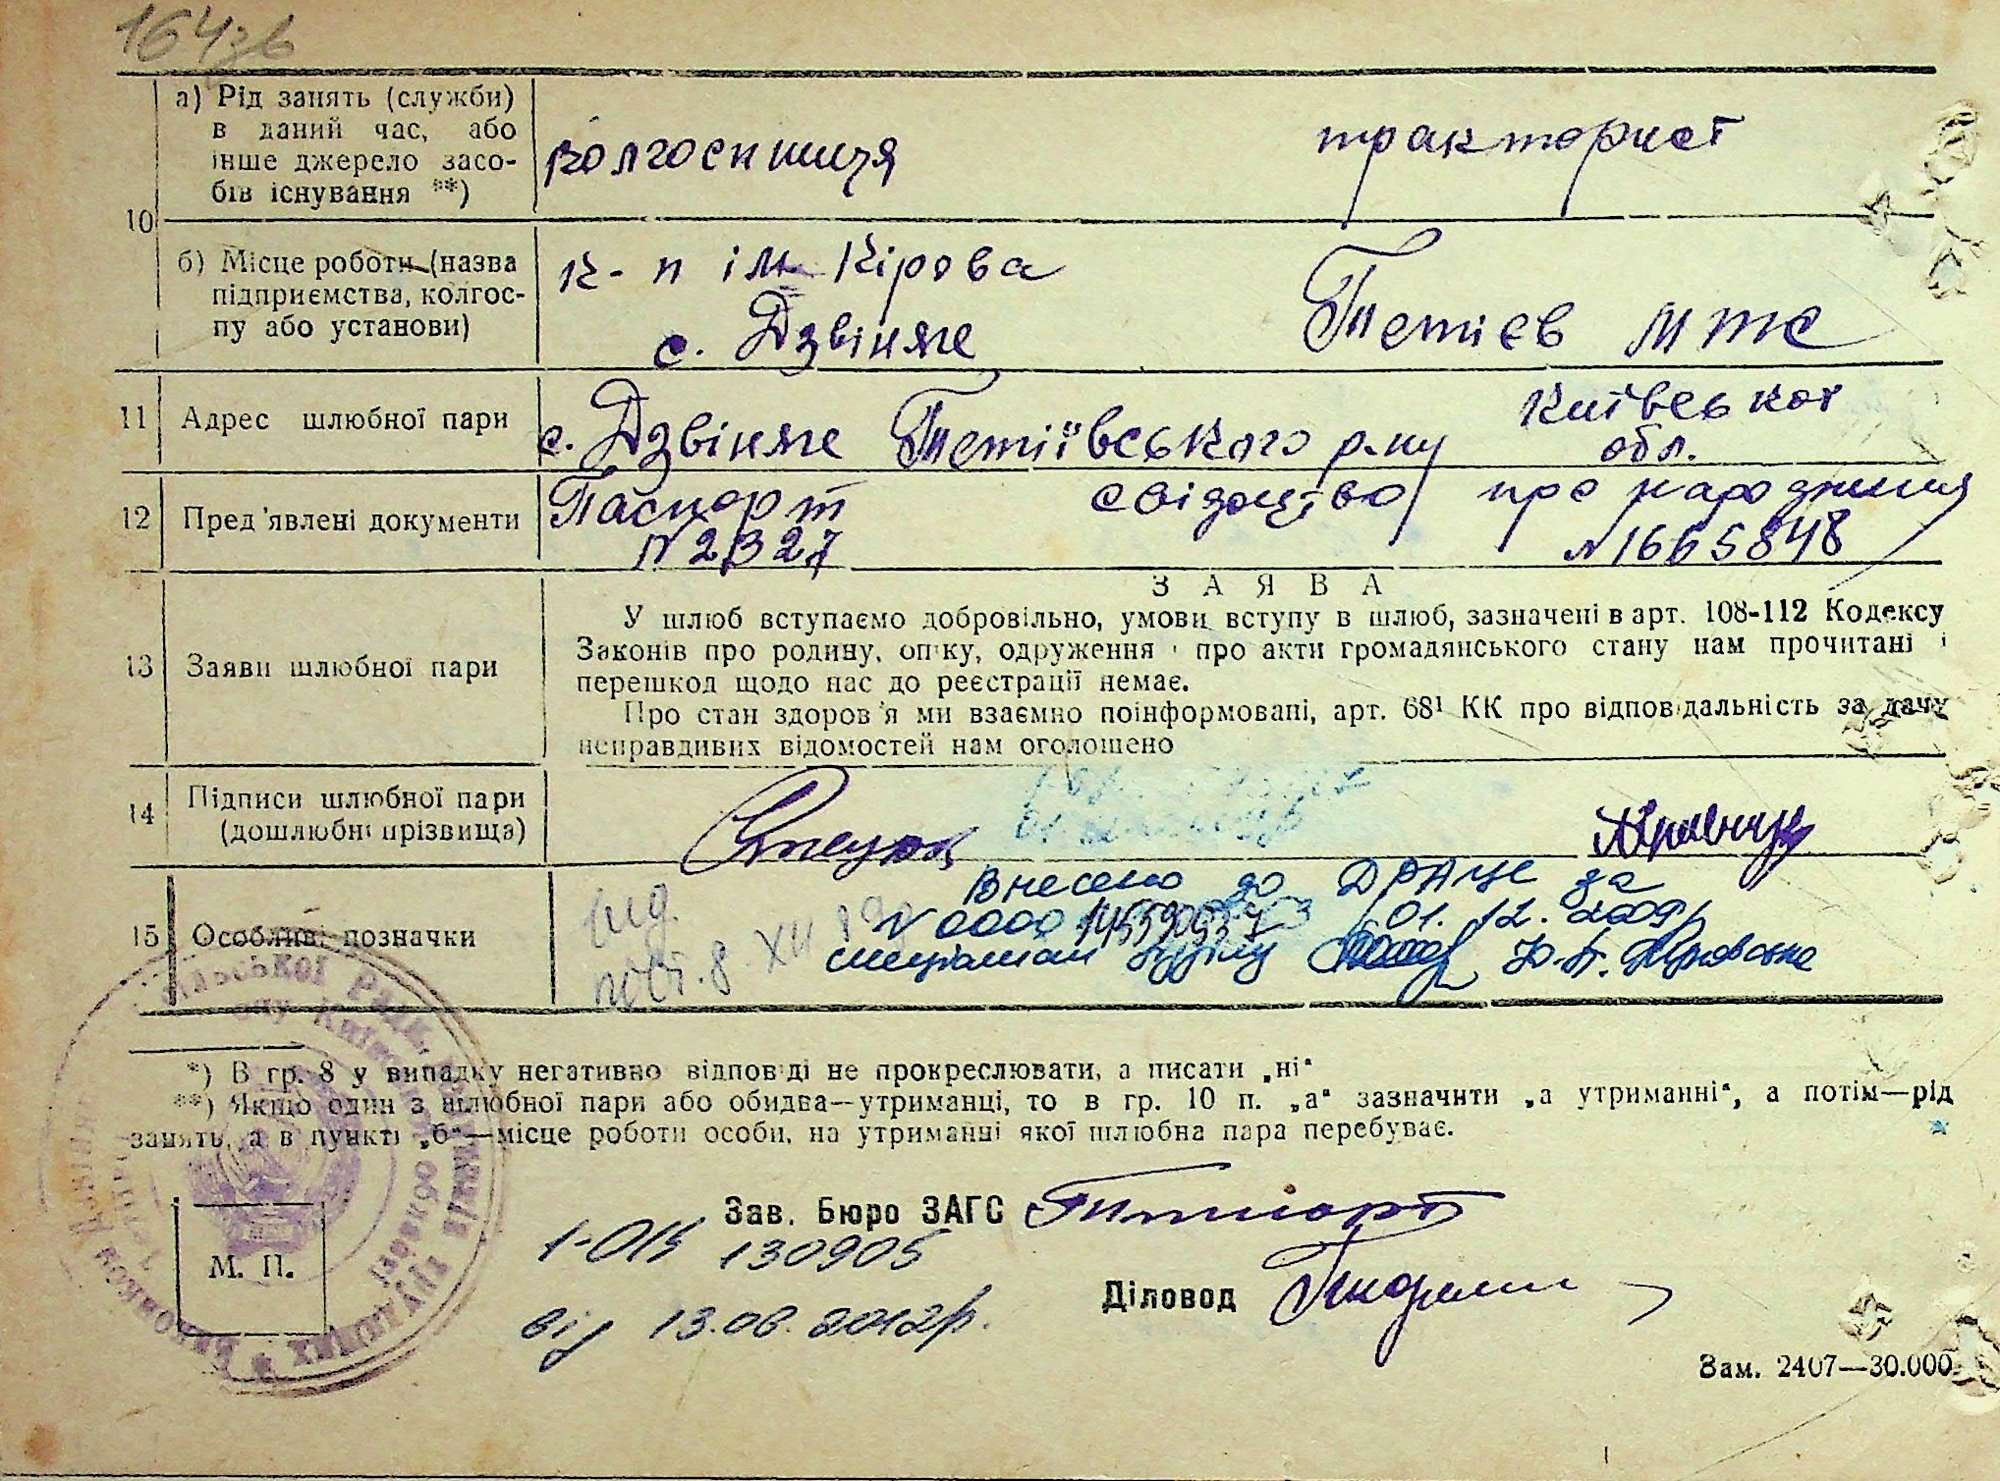 164зв
а) Рід занять (служби)
в даний час, або
інше джерело засо-
бів існування **)
колгоспниця
тракторист
10
б) Місце роботи (назва
підприємства, колгос-
пу або установи)
к-п ім Кірова
с. Дзвіняче
Тетієв МТС
11 Адрес шлюбної пари
с. Дзвіняче Тетіївського р-ну Київської
обл.
12 Пред'явлені документи
Паспорт свідоцтво про народження
N 2327 N 1665848
ЗАЯВА
13 Заяви шлюбної пари
У шлюб вступаємо добровільно, умови вступу в шлюб, зазначені в арт. 108-112 Кодексу
Законів про родину, опіку, одруження і про акти громадянського стану нам прочитані і
перешкод щодо нас до реєстрації немає.
Про стан здоров'я ми взаємно поінформовані, арт. 68¹ КК про відповідальність за дачу
неправдивих відомостей нам оголошено
14 Підписи шлюбної пари
(дошлюбні прізвища)
15 Особливі позначки
Внесено до ДРАЦС за
N 0000 01.12.2009р
спеціаліст відділу
*) В гр. 8 у випадку негативно відповіді не прокреслювати, а писати „ні“
**) Якщо один з шлюбної пари або обидва—утриманці, то в гр. 10 п. „а“ зазначити „а утриманні“, а потім—рід
занять, а в пункті „б“—місце роботи особи, на утриманні якої шлюбна пара перебуває.
Зав. Бюро ЗАГС
1-ОК 130905
М. П.
Діловод
від 13.06.2012р.
Зам. 2407—30.000